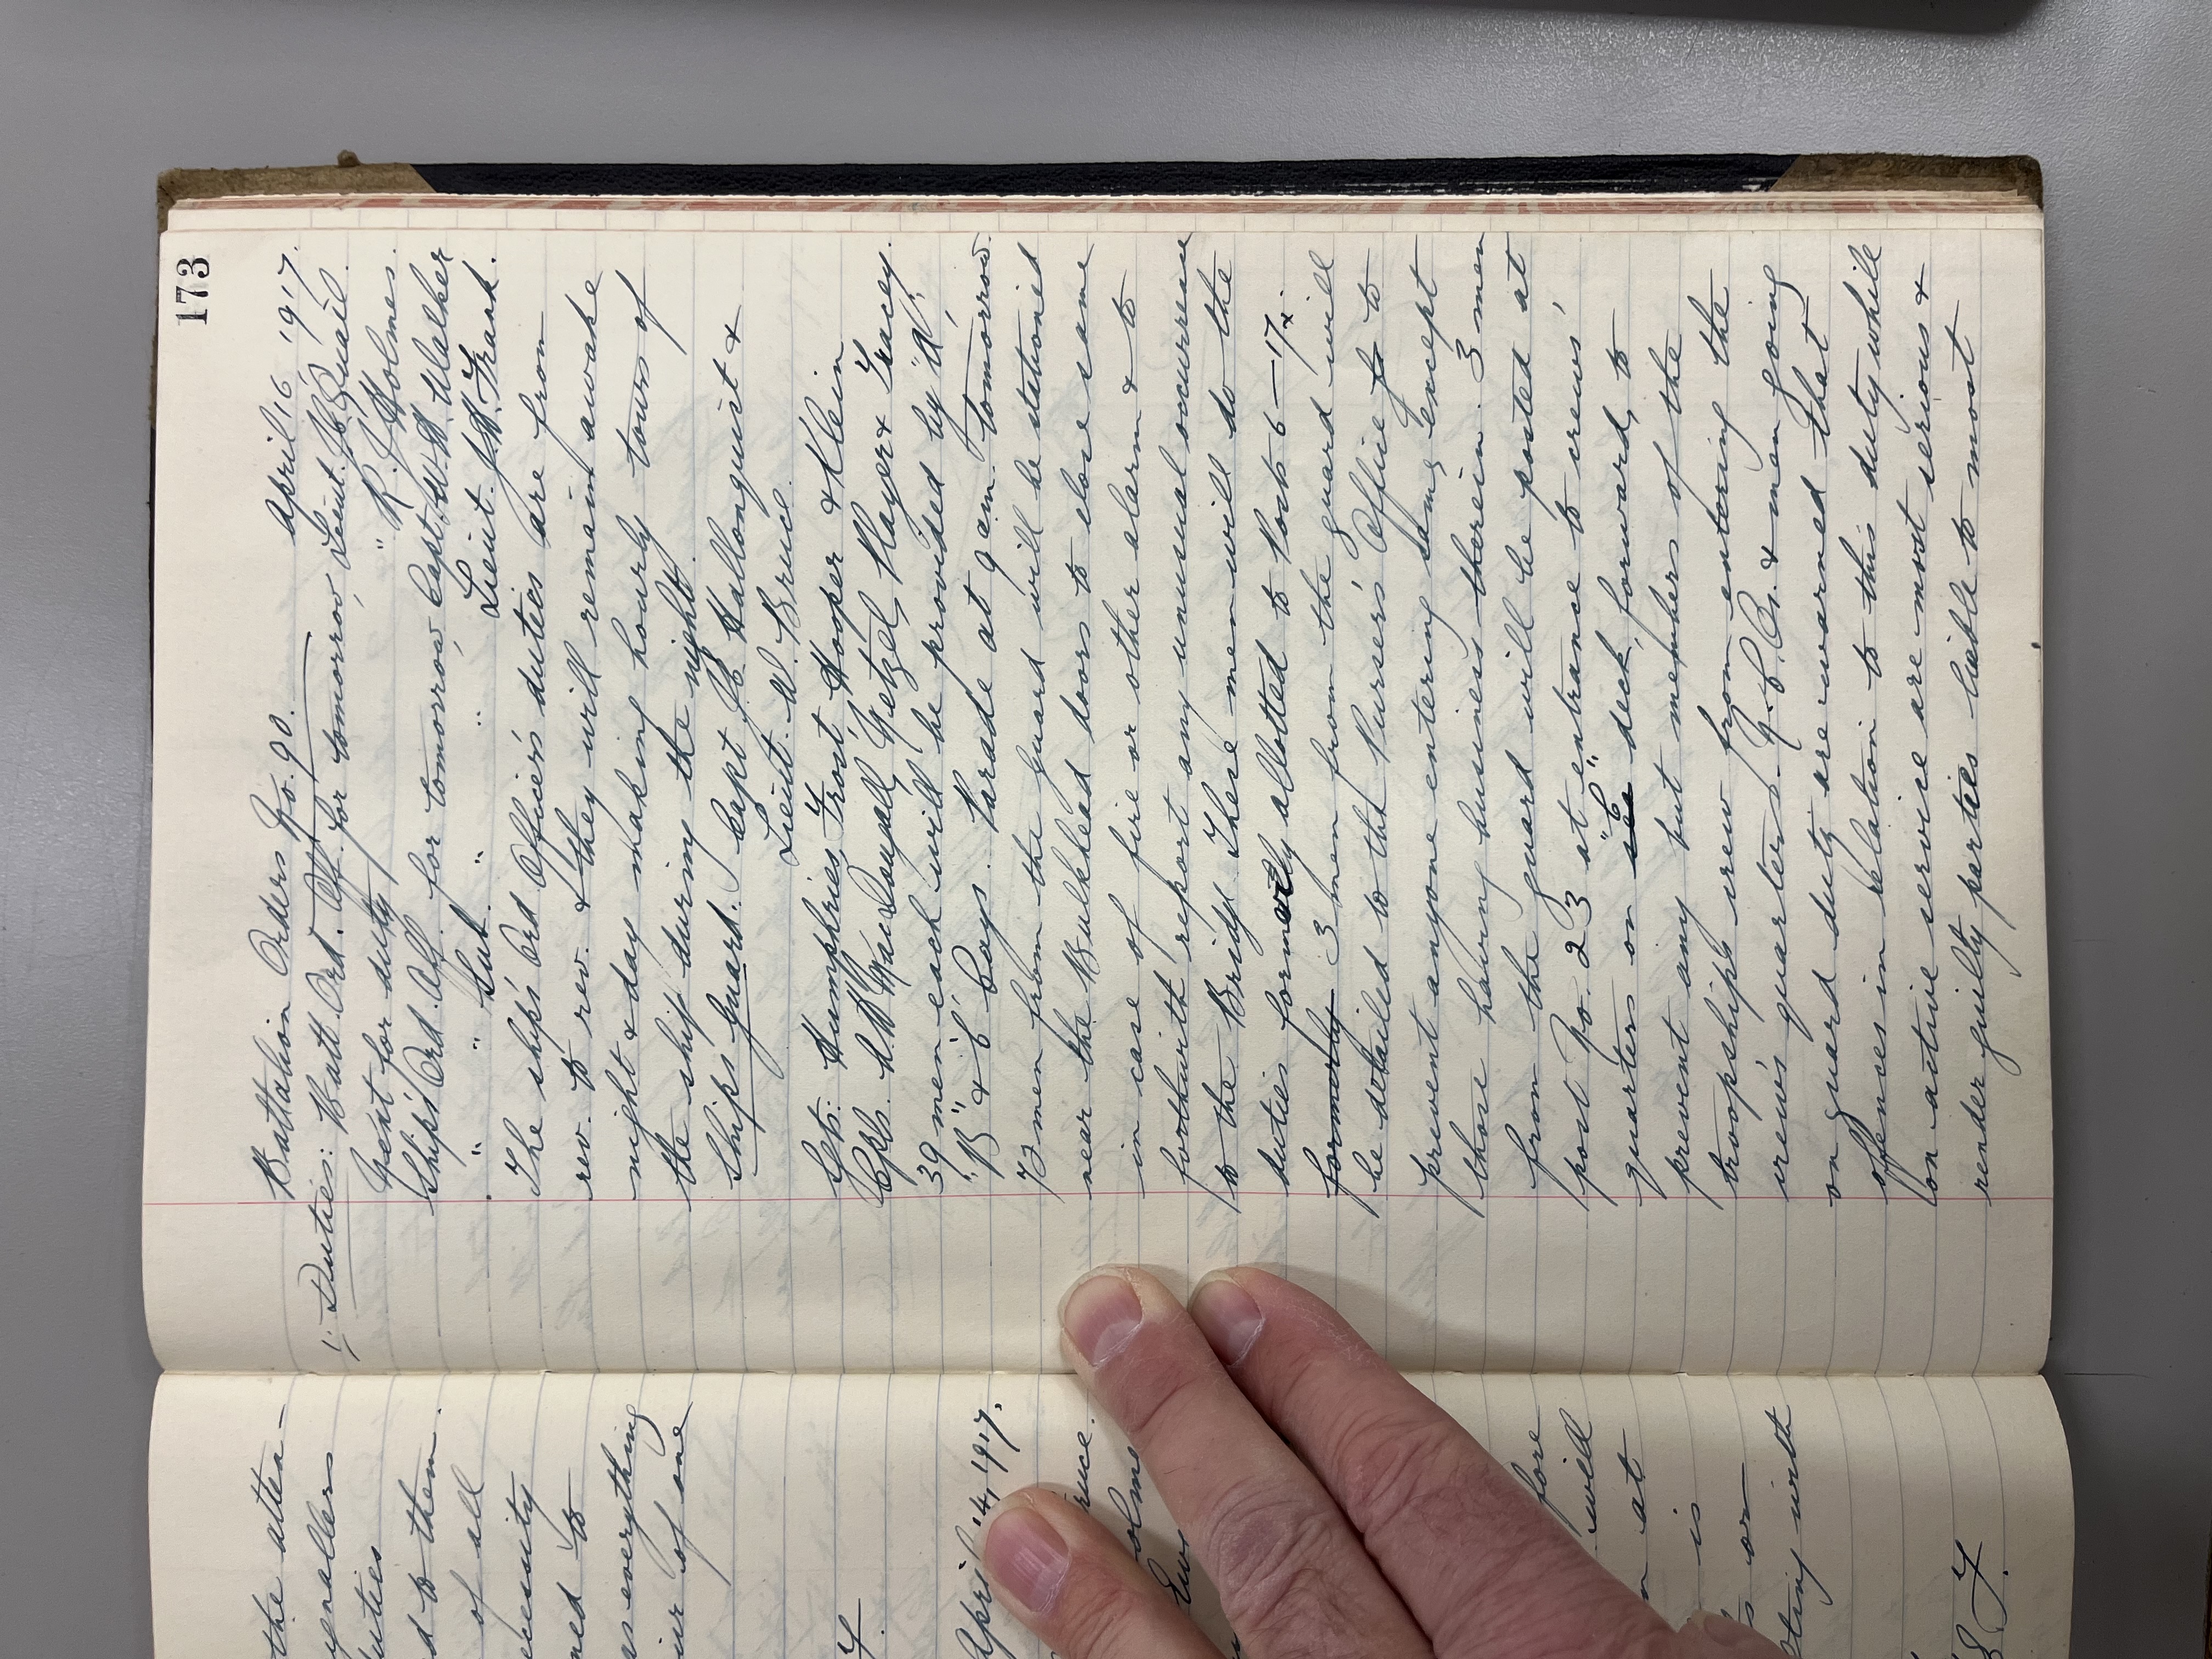 173
Battalion Orders No. 90. April 16 1917.
1. Duties: Batt. Ord. Off. for tomorrow, Lieut.
Next for duty " R. J. Holmes.
Ship's Ord. Off. for tomorrow, Capt. W. H. Walker
" " Sub. " " Lieut. J. H. Frank.
The ship's Ord Officer's duties are from
rev. to rev. & they will remain awake
night & day making hourly tours of
the ship during the night.
Ship's Guard. Capt J. E. Hallonquist &
Lieut. W. Bruce.
Sgts: Humphries, Frost, Hooper & Klein
Cpls. MacDougall, Wetzel, Mayer & Tracey.
39 men each will be provided by "A",
"B" & "C" Coys. Parade at 9 am. tomorrow.
72 men from the guard will be stationed
near the Bulkhead doors to close same
in case of fire or other alarm & to
forthwith report any unusual occurrence
to the Bridge. These men will do the
duties formerly allotted to Posts 6-17.
formerly 3 men from the guard will
be detailed to the Purser's Office to to
prevent anyone entering same, except
those having business therein. 3 men
from the guard will be posted at
post No. 23 at entrance to crews'
quarters on "C" deck, forward, to
prevent any but members of the
troopship's crew from entering the
crew's quarters. N.C.O's. & men going
on guard duty are warned that
offences in relation to this duty while
on active service are most serious &
render guilty parties liable to most
the atten-
of all
everything
of one
April 14, 1917.
will
at
is
or
with